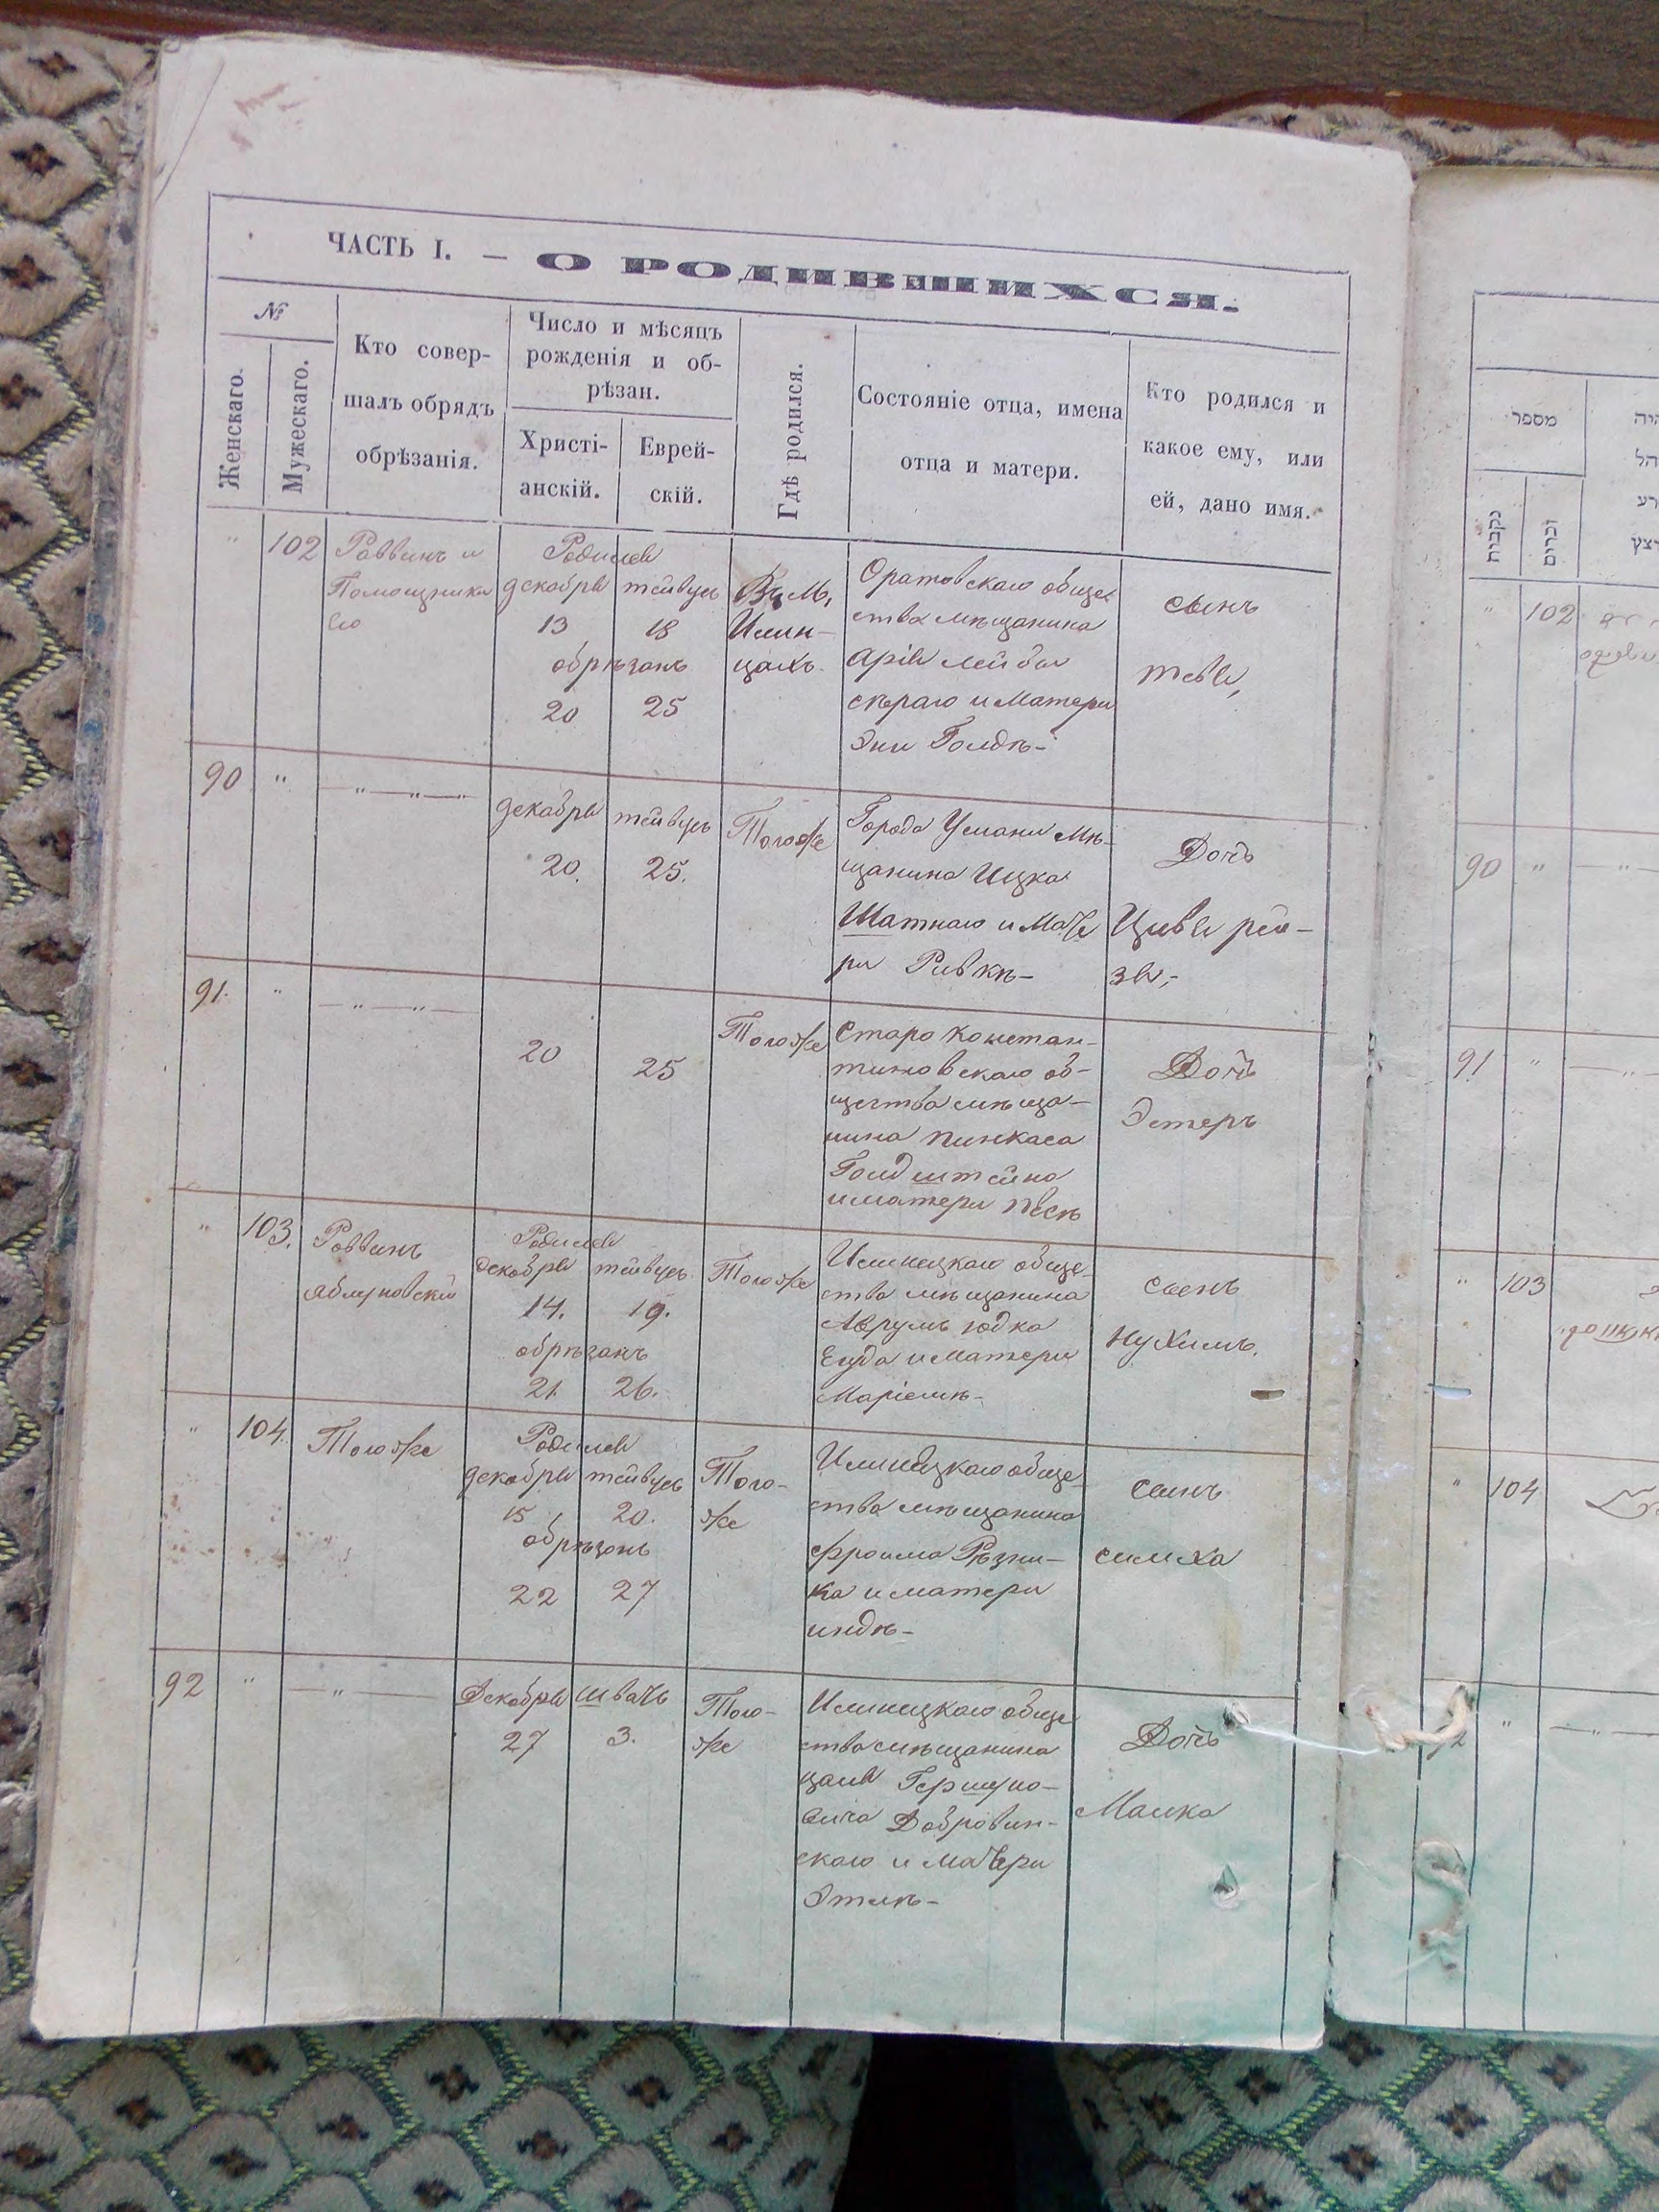 ЧАСТЬ I. — О РОДИВШИХСЯ.
№
Женскаго.
Мужескаго.
Кто совер-
шалъ обрядъ
обрѣзанія.
Число и мѣсяцъ
рожденія и об-
рѣзан.
Христі-
анскій.
Еврей-
скій.
Гдѣ родился.
Состояніе отца, имена
отца и матери.
Кто родился и
какое ему, или
ей, дано имя.
" 102
Раввинъ и
Помощники
его
Родился
декабря тейвусъ
13 18
обрѣзанъ
20 25
Въ М.
Илин-
цахъ
Оратовскаго обще
ства мѣщанина
Арія Лейба
и Матери
Голдѣ-
сынъ
Тевя,
90 "
— " — " —
декабря тейвусъ
20. 25.
Тогоже
Города Умани мѣ-
щанина Ицка
Шатнаго и Мате
ри Ривкѣ-
Дочь
Цивя рей-
зя,-
91. "
— " — " —
20 25
Тогоже
Старо Констан-
тиновскаго об-
щества мѣща-
нина Пинкаса
Голдштейна
и матери Песѣ
Дочь
Эстеръ
" 103.
Раввинъ
Яблуновскій
Родился
декабря тейвусъ
14. 19.
обрѣзанъ
21. 26.
Тогоже
Илинецкаго обще-
ства мѣщанина
Аврумъ Юдка
и Матери
Маріемѣ-
сынъ
Нухимъ.
" 104.
Тогоже
Родился
декабря тейвусъ
15 20.
обрѣзанъ
22 27
Того-
же
Илинецкаго обще-
ства мѣщанина
Фроима Рѣзни-
ка и матери
Индѣ-
сынъ
симха
92 "
— " —
Декабря шватъ
27 3.
Того-
же
Илинецкаго обще
ства мѣщанина
Гершуно-
вича Добровин-
скаго и матери
Этлѣ-
Дочь
Малка
מספר
נקבות
זכרים
" 102
90 "
91 "
" 103
" 104
"